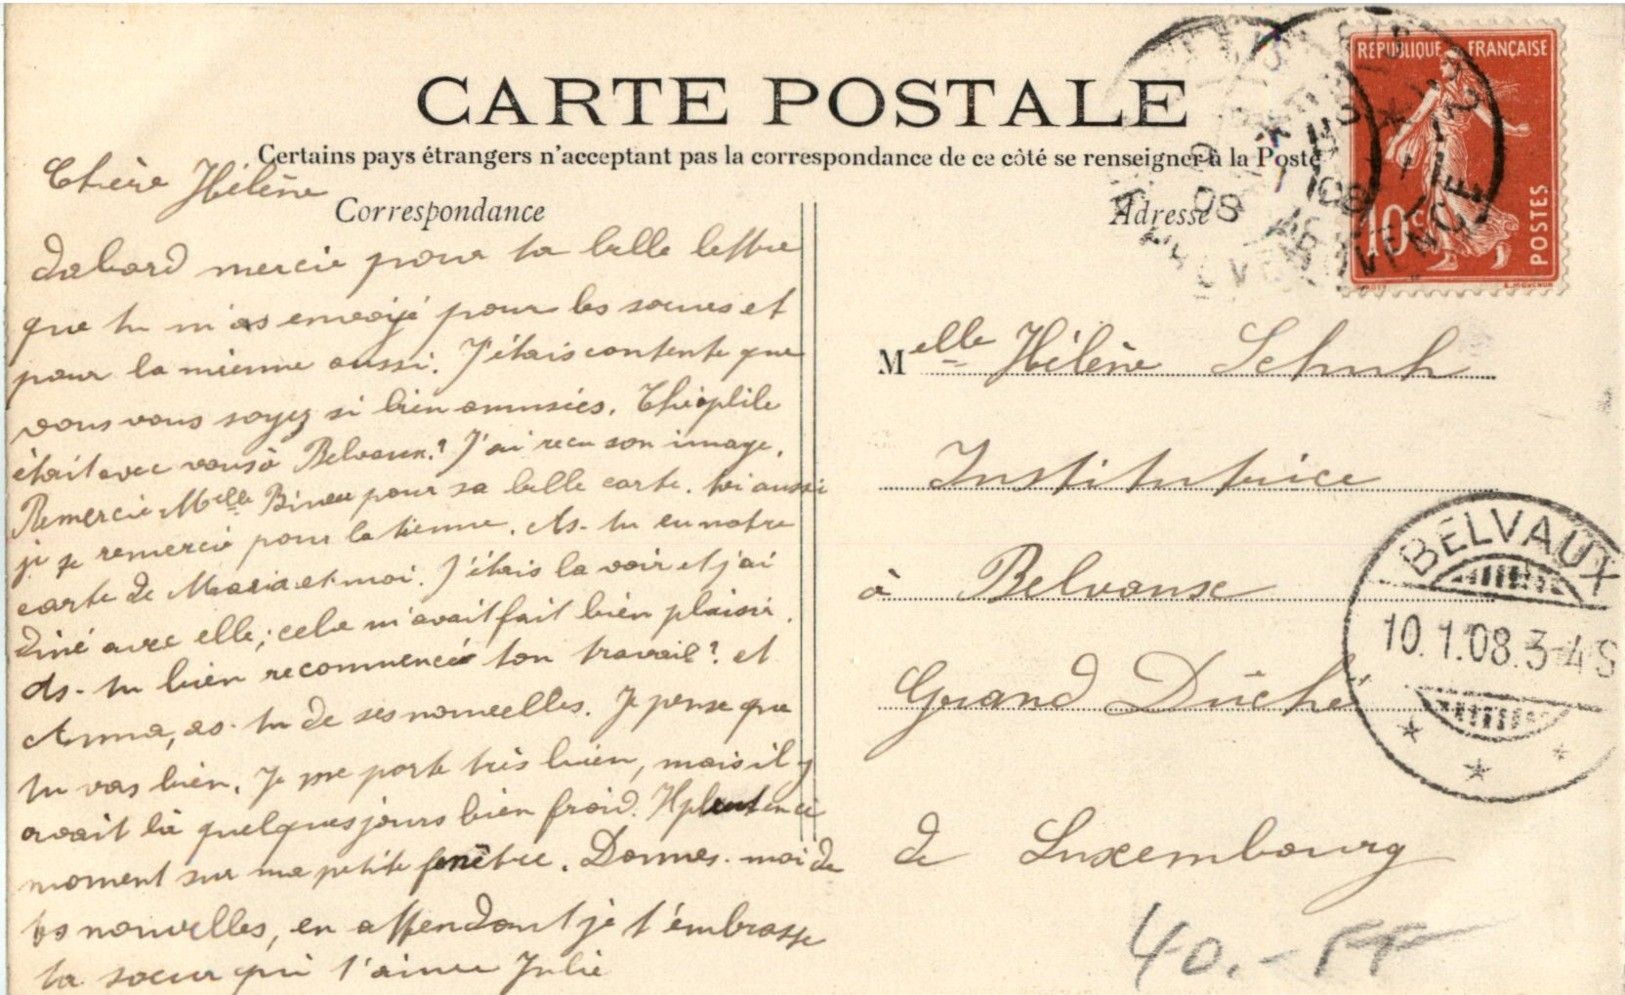 CARTE POSTALE
Certains pays étrangers n'acceptant pas la correspondance de ce côté se renseigner à la Poste
Correspondance
Adresse
Chère Hélène
dabord mercie pour ta belle lettre
que tu m'as envoyé pour les soeurs et
pour la mienne aussi. J'étais contente que
vous vous soyez si bien amusées. Théophile
était avec vous à Belvaux? J'ai recu son image.
Remercie Melle pour sa belle carte. toi aussi
je te remercie pour la tienne. As-tu eu notre
carte de Maria et moi. J'étais la voir et j'ai
diné avec elle; cela m'avait fait bien plaisir.
As-tu bien recommencée ton travail? et
Anna, as-tu de ses nouvelles. Je pense que
tu vas bien. Je me porte très bien, mais il y
avait là quelques jours bien froid. Il pleut en ce
moment sur ma petite fenêtre. Donnes-moi de
tes nouvelles, en attendant je t'embrasse
ta soeur qui t'aime Julie
REPUBLIQUE FRANÇAISE
10c
POSTES
Melle Hélène Schuh
Institutrice
à Belvaux
Grand Duché
de Luxembourg
BELVAUX
10.1.08.3-4S
40.-FF